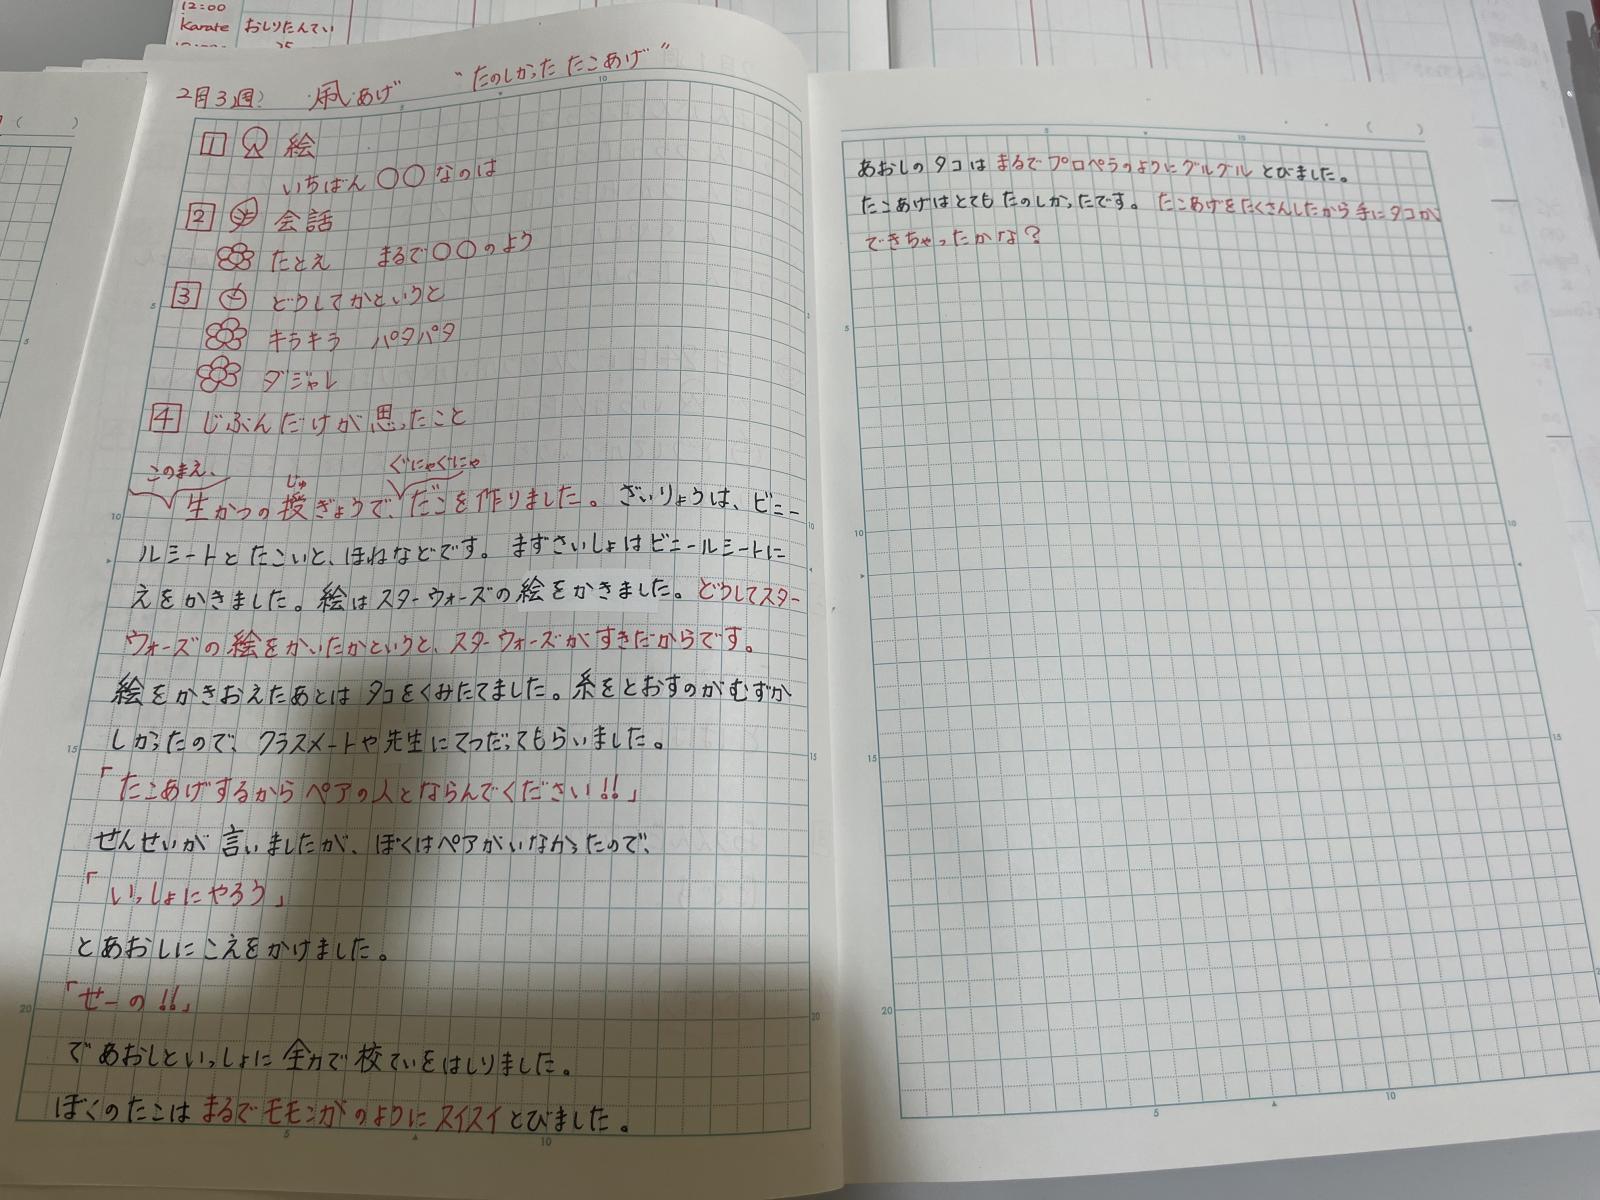 12:00
Karate おしりたんてい
2月3週 凧あげ "たのしかった たこあげ"
1 絵
いちばん〇〇なのは
2 会話
たとえ まるで〇〇のよう
3 どうしてかというと
キラキラ パタパタ
ダジャレ
4 じぶんだけが思ったこと
このまえ、 じゅ ぐにゃぐにゃ
生かつの授ぎょうで、だこを作りました。ざいりょうは、ビニー
ルミートとたこいと、ほねなどです。まずさいしょはビニールミートに
えをかきました。絵はスターウォーズの絵をかきました。どうしてスター
ウォーズの絵をかいたかというと、スターウォーズがすきだからです。
絵をかきおえたあとはタコをくみたてました。糸をとおすのがむずか
しかったので、クラスメートや先生にてつだってもらいました。
「たこあげするからペアの人とならんでください!!」
せんせいが言いましたが、ぼくはペアがいなかったので、
「いっしょにやろう」
とあおしにこえをかけました。
「せーの!!」
であおしといっしょに全力で校ていをはしりました。
ぼくのたこはまるでモモンガのようにスイスイとびました。
あおしのタコはまるでプロペラのようにグルグルとびました。
たこあげはとてもたのしかったです。たこあげをたくさんしたから手にタコが
できちゃったかな?